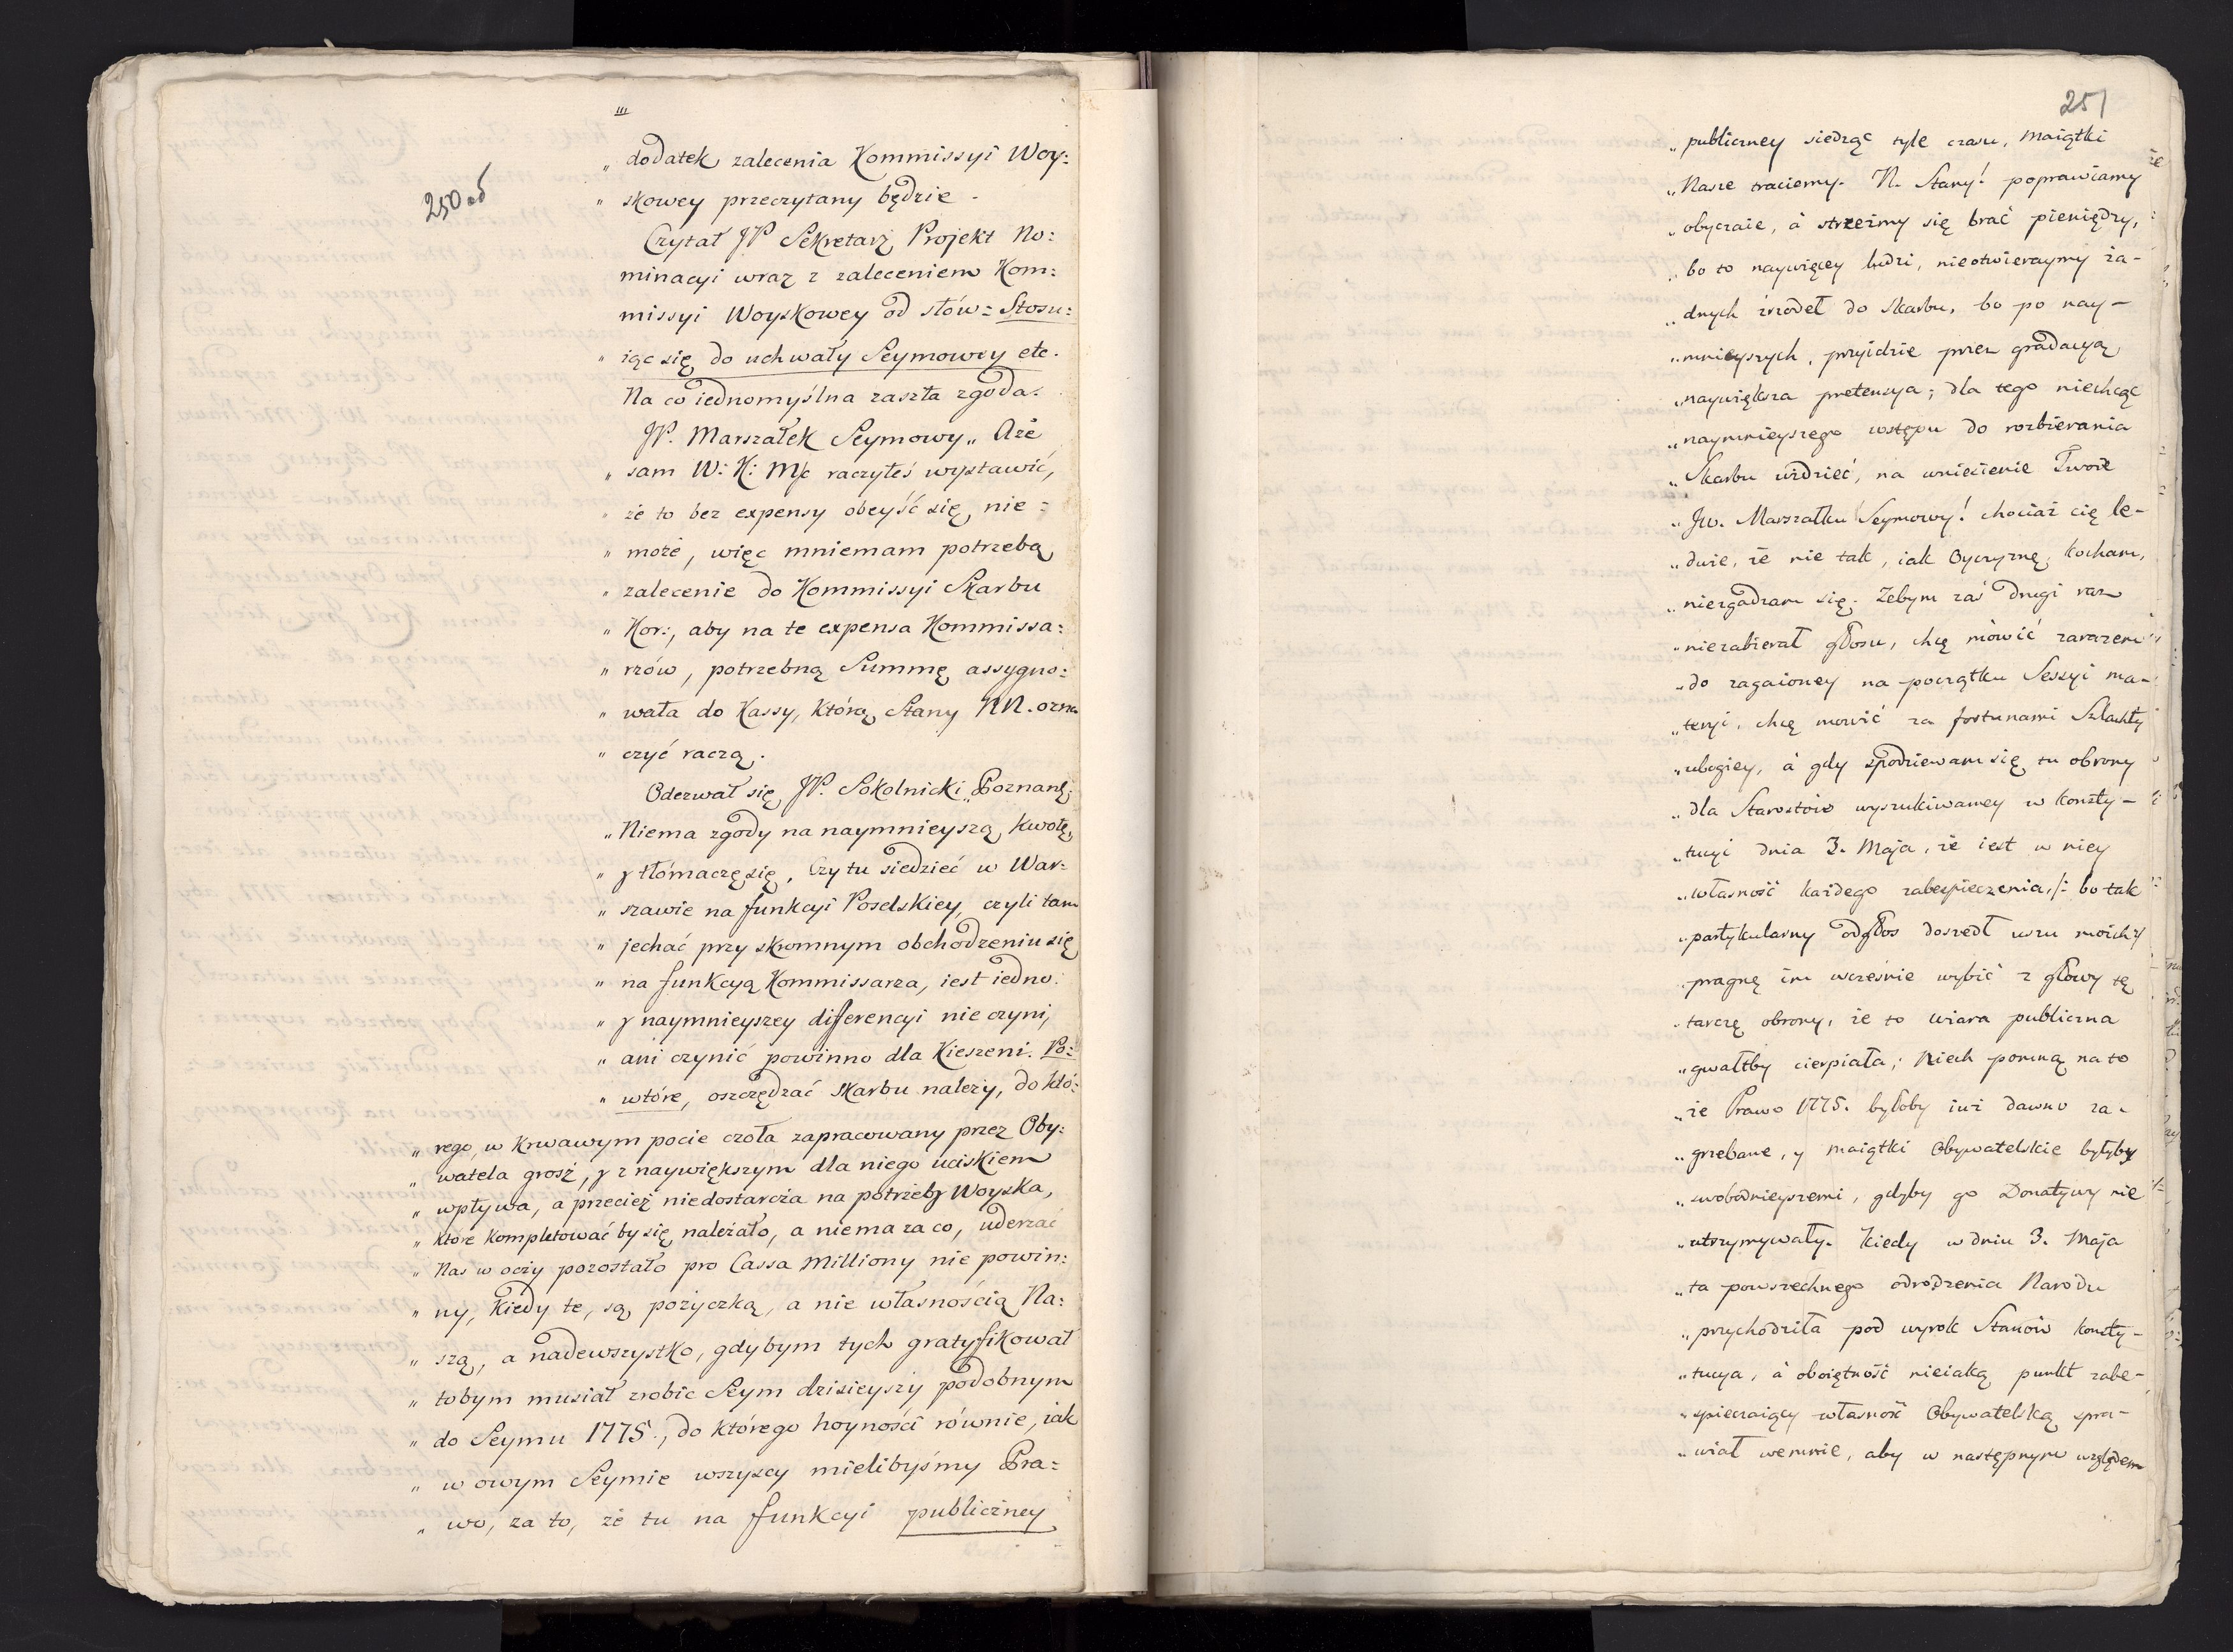 250 об
„ dodatek zalecenia Kommissyi Woy:
„ skowey przeczytany będzie.
Czytał JP Sekretarz Projekt No:
minacyi wraz z zaleceniem Kom:
missyi Woyskowey od słów: Stosu:
„ iąc się do uchwały Seymowey etc.
Na co iednomyślna zaszła zgoda.
JP. Marszałek Seymowy „ Aże
„ sam W: K: Mć raczyłeś wystawić,
„ że to bez expensy obeyść się nie:
„ może, więc mniemam potrzebą
„ zalecenie do Kommissyi Skarbu
„ Kor:, aby na te expensa Kommissa:
„ rzów, potrzebną Summę assygno:
„ wała do Kassy, którą Stany NN. ozna
„ czyć raczą.
Odezwał się JP. Sokolnicki „ Poznań:
„ Niema zgody na naymnieyszą kwotę,
„ y tłómaczę się, Czy tu siedzieć w War:
„ szawie na funkcyi Poselskiey, czyli tam
„ jechać przy skromnym obchodzeniu się
„ na funkcyą Kommissarza, iest iedno.
„ y naymnieyszey differencyi nie czyni,
„ ani czynić powinno dla Kieszeni. Po:
„ wtóre, oszczędzać Skarbu należy, do któ:
„ rego, w krwawym pocie czoła zapracowany przez Oby:
„ watela grosz, y z naywiększym dla niego uciskiem
„ wpływa, a przecież niedostarcza na potrzeby Woyska,
„ które kompletować by się należało, a niema za co, uderzać
„ Nas w oczy pozostało pro Cassa Milliony nie powin:
„ ny, kiedy te, są pożyczką, a nie własnością Na:
„ szą, a nadewszystko, gdybym tych gratyfikował
„ tobym musiał zrobić Seym dzisieyszy podobnym
„ do Seymu 1775., do którego hoyności równie, iak
„ w owym Seymie wszyscy mielibyśmy Pra:
„ wo, za to, że tu na funkcyi publiczney
251
„ publiczney siedząc tyle czasu, maiątki
„ Nasze traciemy. N. Stany! poprawiamy
„ obyczaie, à strzeżmy się brać pieniędzy,
„ bo to naywięcey ludzi, nieotwieraymy ża-
„ dnych źrzodeł do Skarbu, bo po nay-
„ mnieyszych, przyidzie przez gradacyą
„ naywiększa pretensya; dla tego niechcąc
„ naymnieyszego wstępu do rozbierania
„ Skarbu widzieć, na wniesienie Twoie
„ Jw. Marszałku Seymowy! chociaż cię lu-
„ dzie, że nie tak, iak Oyczyznę, kocham,
„ niezgadzam się. Zebym zaś drugi raz
„ niezabierał głosu, chcę mówić zarazem
„ do zagaioney na początku Sessyi ma-
„ teryi, chcę mowić za fortunami Szlachty
„ ubogiey, à gdy spodziewam się tu obrony
„ dla Starostów wyszukiwaney w konsty-
„ tucyi dnia 3. Maja, że iest w niey
„ własność każdego zabespieczenia, /: bo tak
„ partykularny odgłos doszedł uszu moich :/
„ pragnę im wcześnie wybić z głowy tę
„ tarczę obrony, że to wiara publiczna
„ gwałtby cierpiała; Niech pomną na to
„ że Prawo 1775. byłoby iuż dawno za-
„ grzebane, y maiątki Obywatelskie byłyby
„ swobodnieyszemi, gdyby go Donatywy nie
„ utrzymywały. Kiedy w dniu 3. Maja
„ ta powszechnego odrodzenia Narodu
„ przychodziła pod wyrok Stanów konsty-
„ tucya, à oboiętność nieiaką punkt zabe-
„ spieczaiący własność Obywatelską spra-
„ wiał wemnie, aby w następnym względem